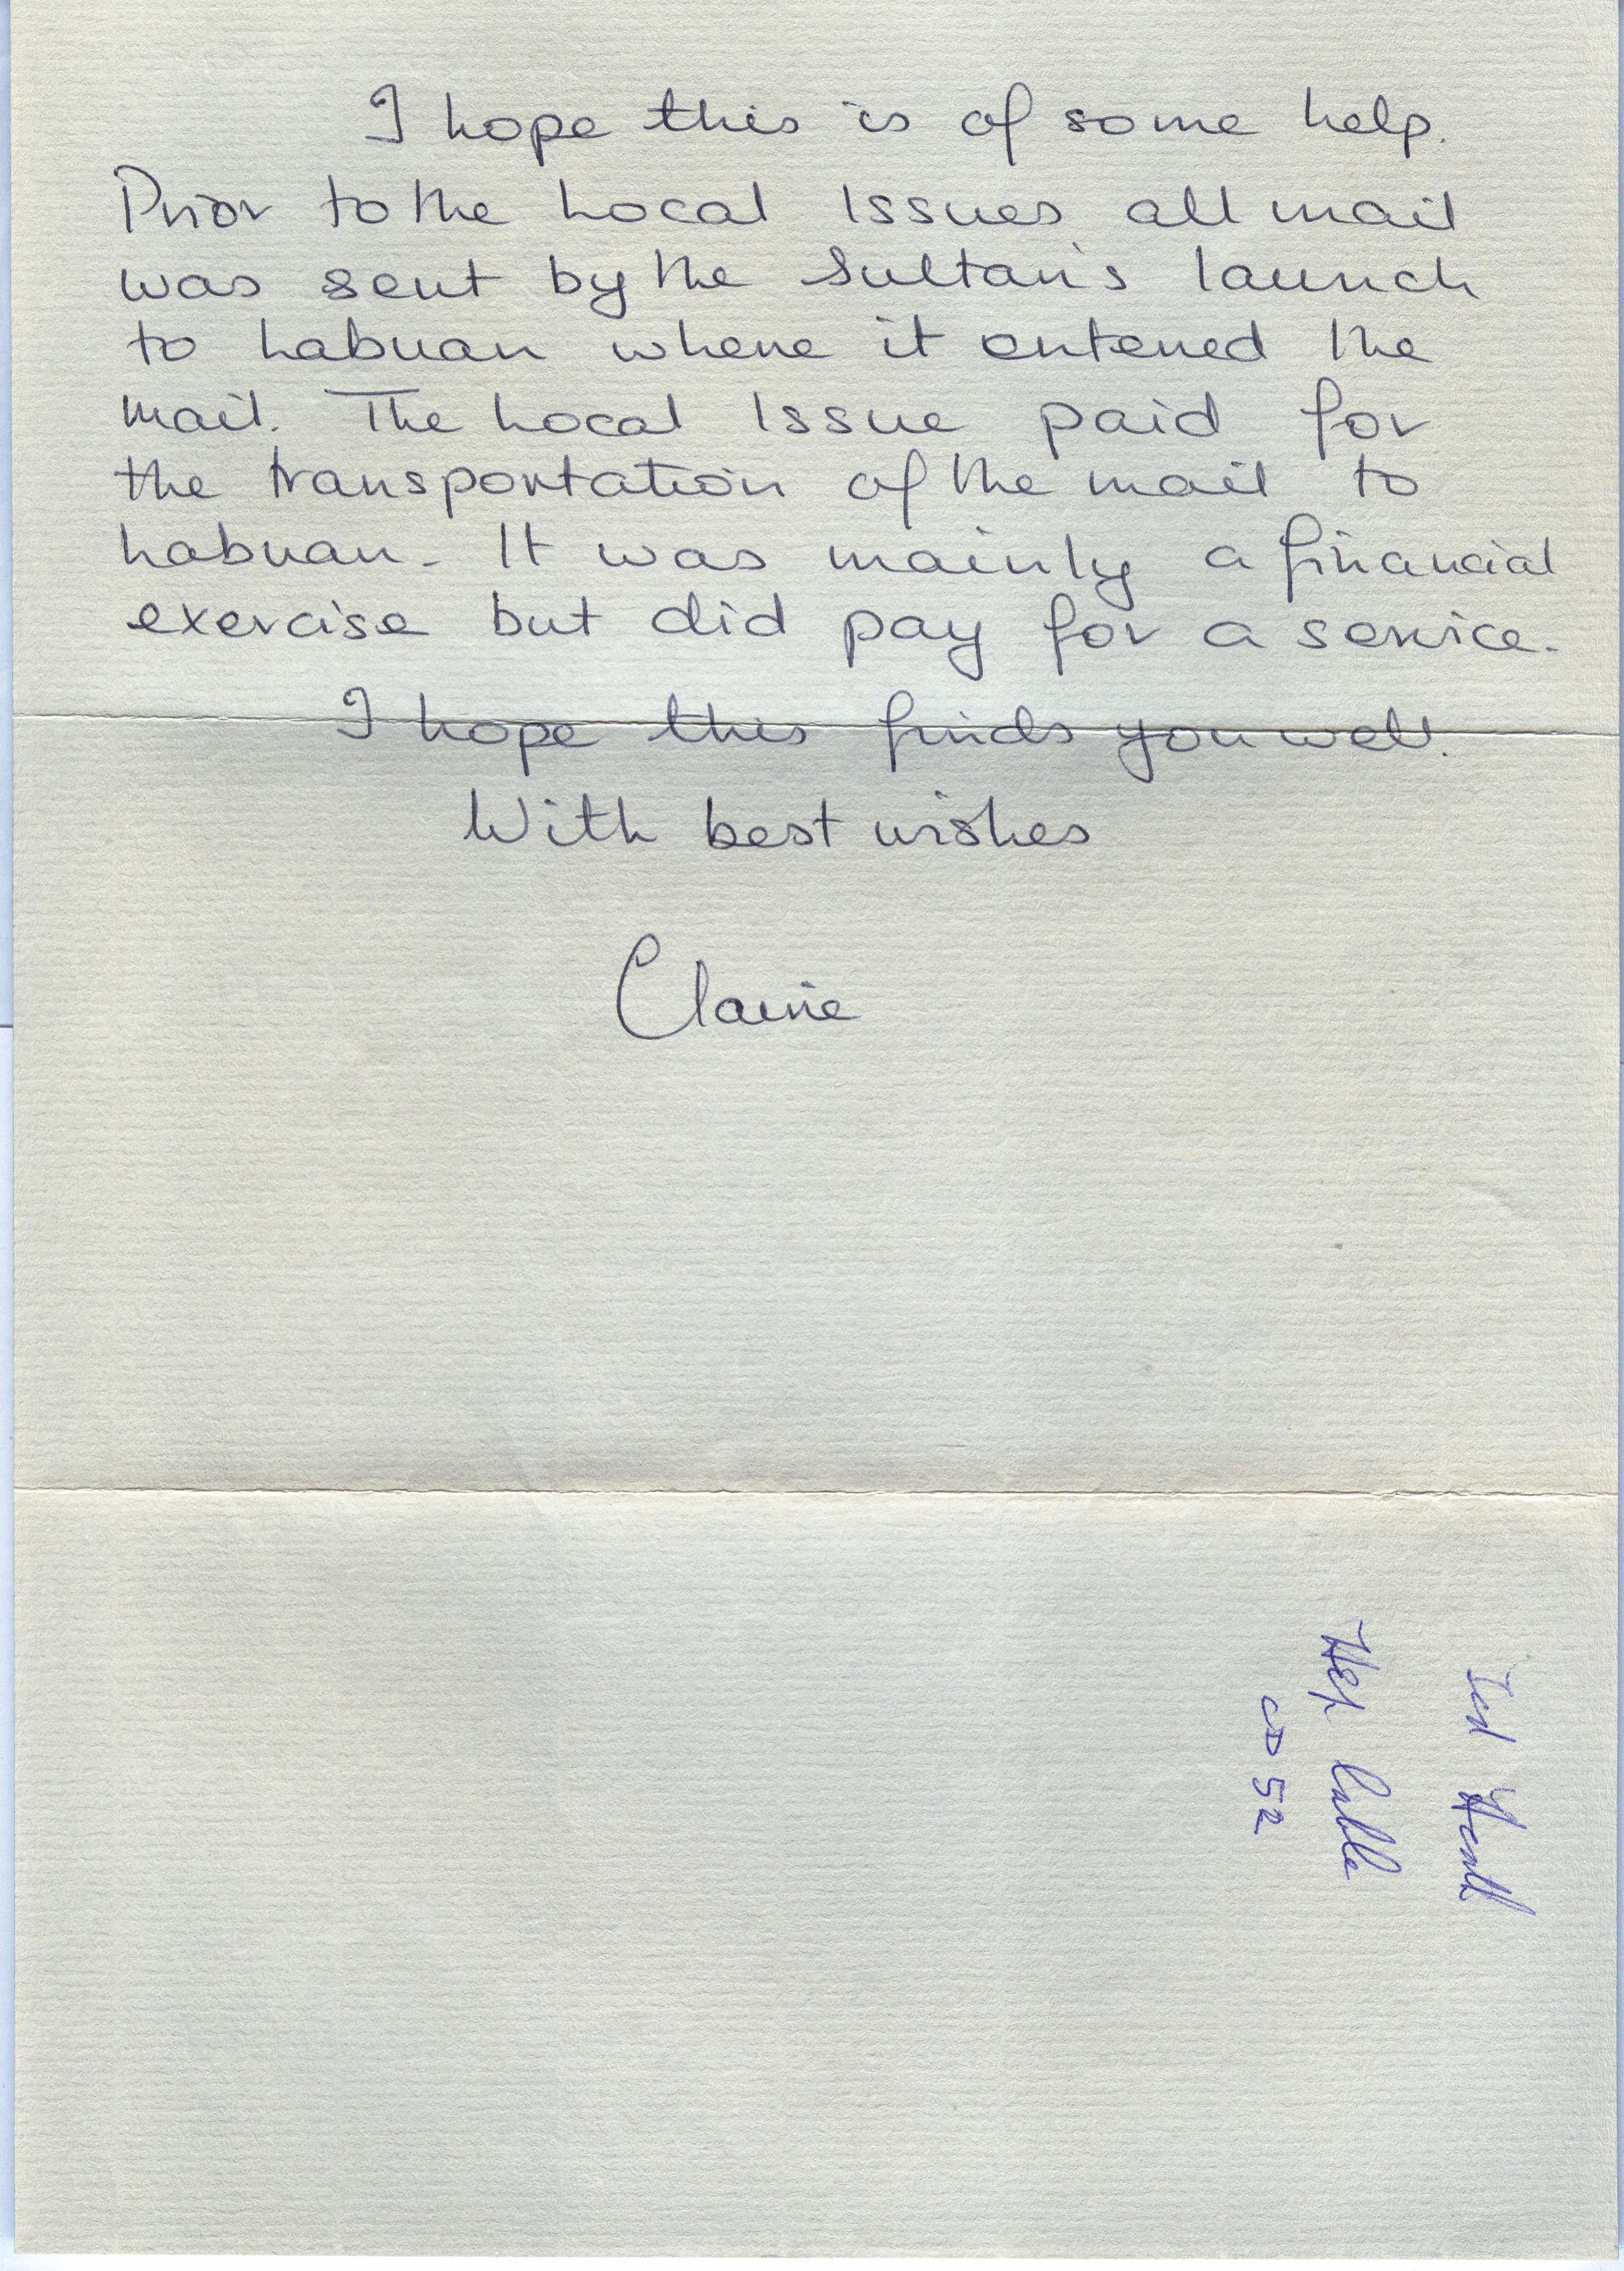 I hope this is of some help.
Prior to the Local Issues all mail
was sent by the Sultan's launch
to Labuan where it entered the
mail. The Local Issue paid for
the transportation of the mail to
Labuan. It was mainly a financial
exercise but did pay for a service.
I hope this finds you well.
With best wishes
Claire
Ted
52